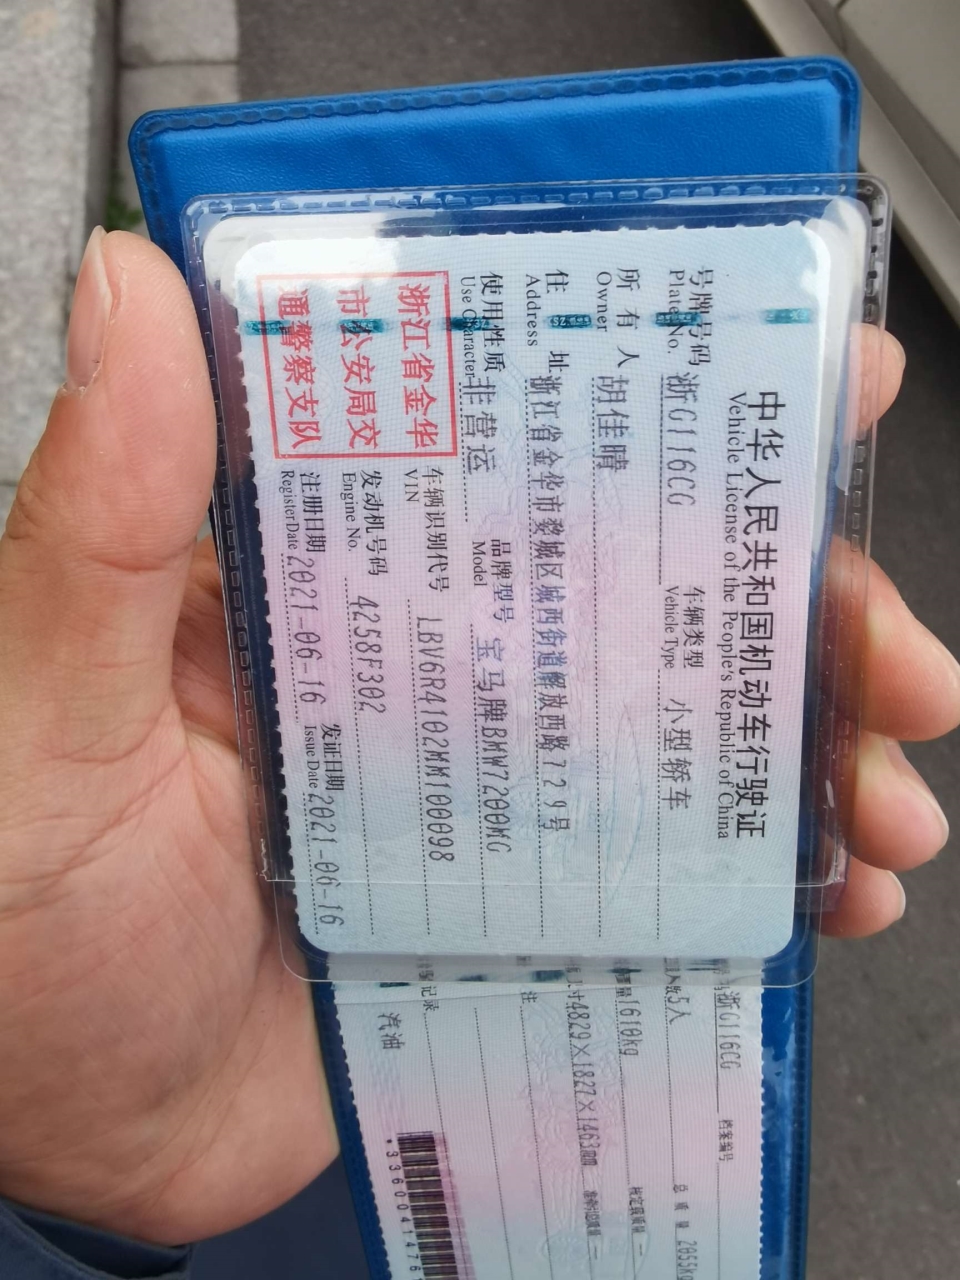 中华人民共和国机动车行驶证
Vehicle License of the People's Republic of China
号牌号码 浙G116CG 车辆类型 小型轿车
Plate No. Vehicle Type
所有人 胡佳晴
Owner
住址 浙江省金华市婺城区城西街道解放西路729号
Address
使用性质 非营运 品牌型号 宝马牌BMW7200MG
Use Character Model
浙江省金华
市公安局交
通警察支队
车辆识别代号 LBV6R4102MM100098
VIN
发动机号码 4258F302
Engine No.
注册日期 2021-06-16 发证日期 2021-06-16
Register Date Issue Date
浙G116CG 档案编号
5人 总质量 2055kg
1610kg 核定载质量 —
4829×1827×1463mm 准牵引总质量 —
注
记录
汽油
*3360041476